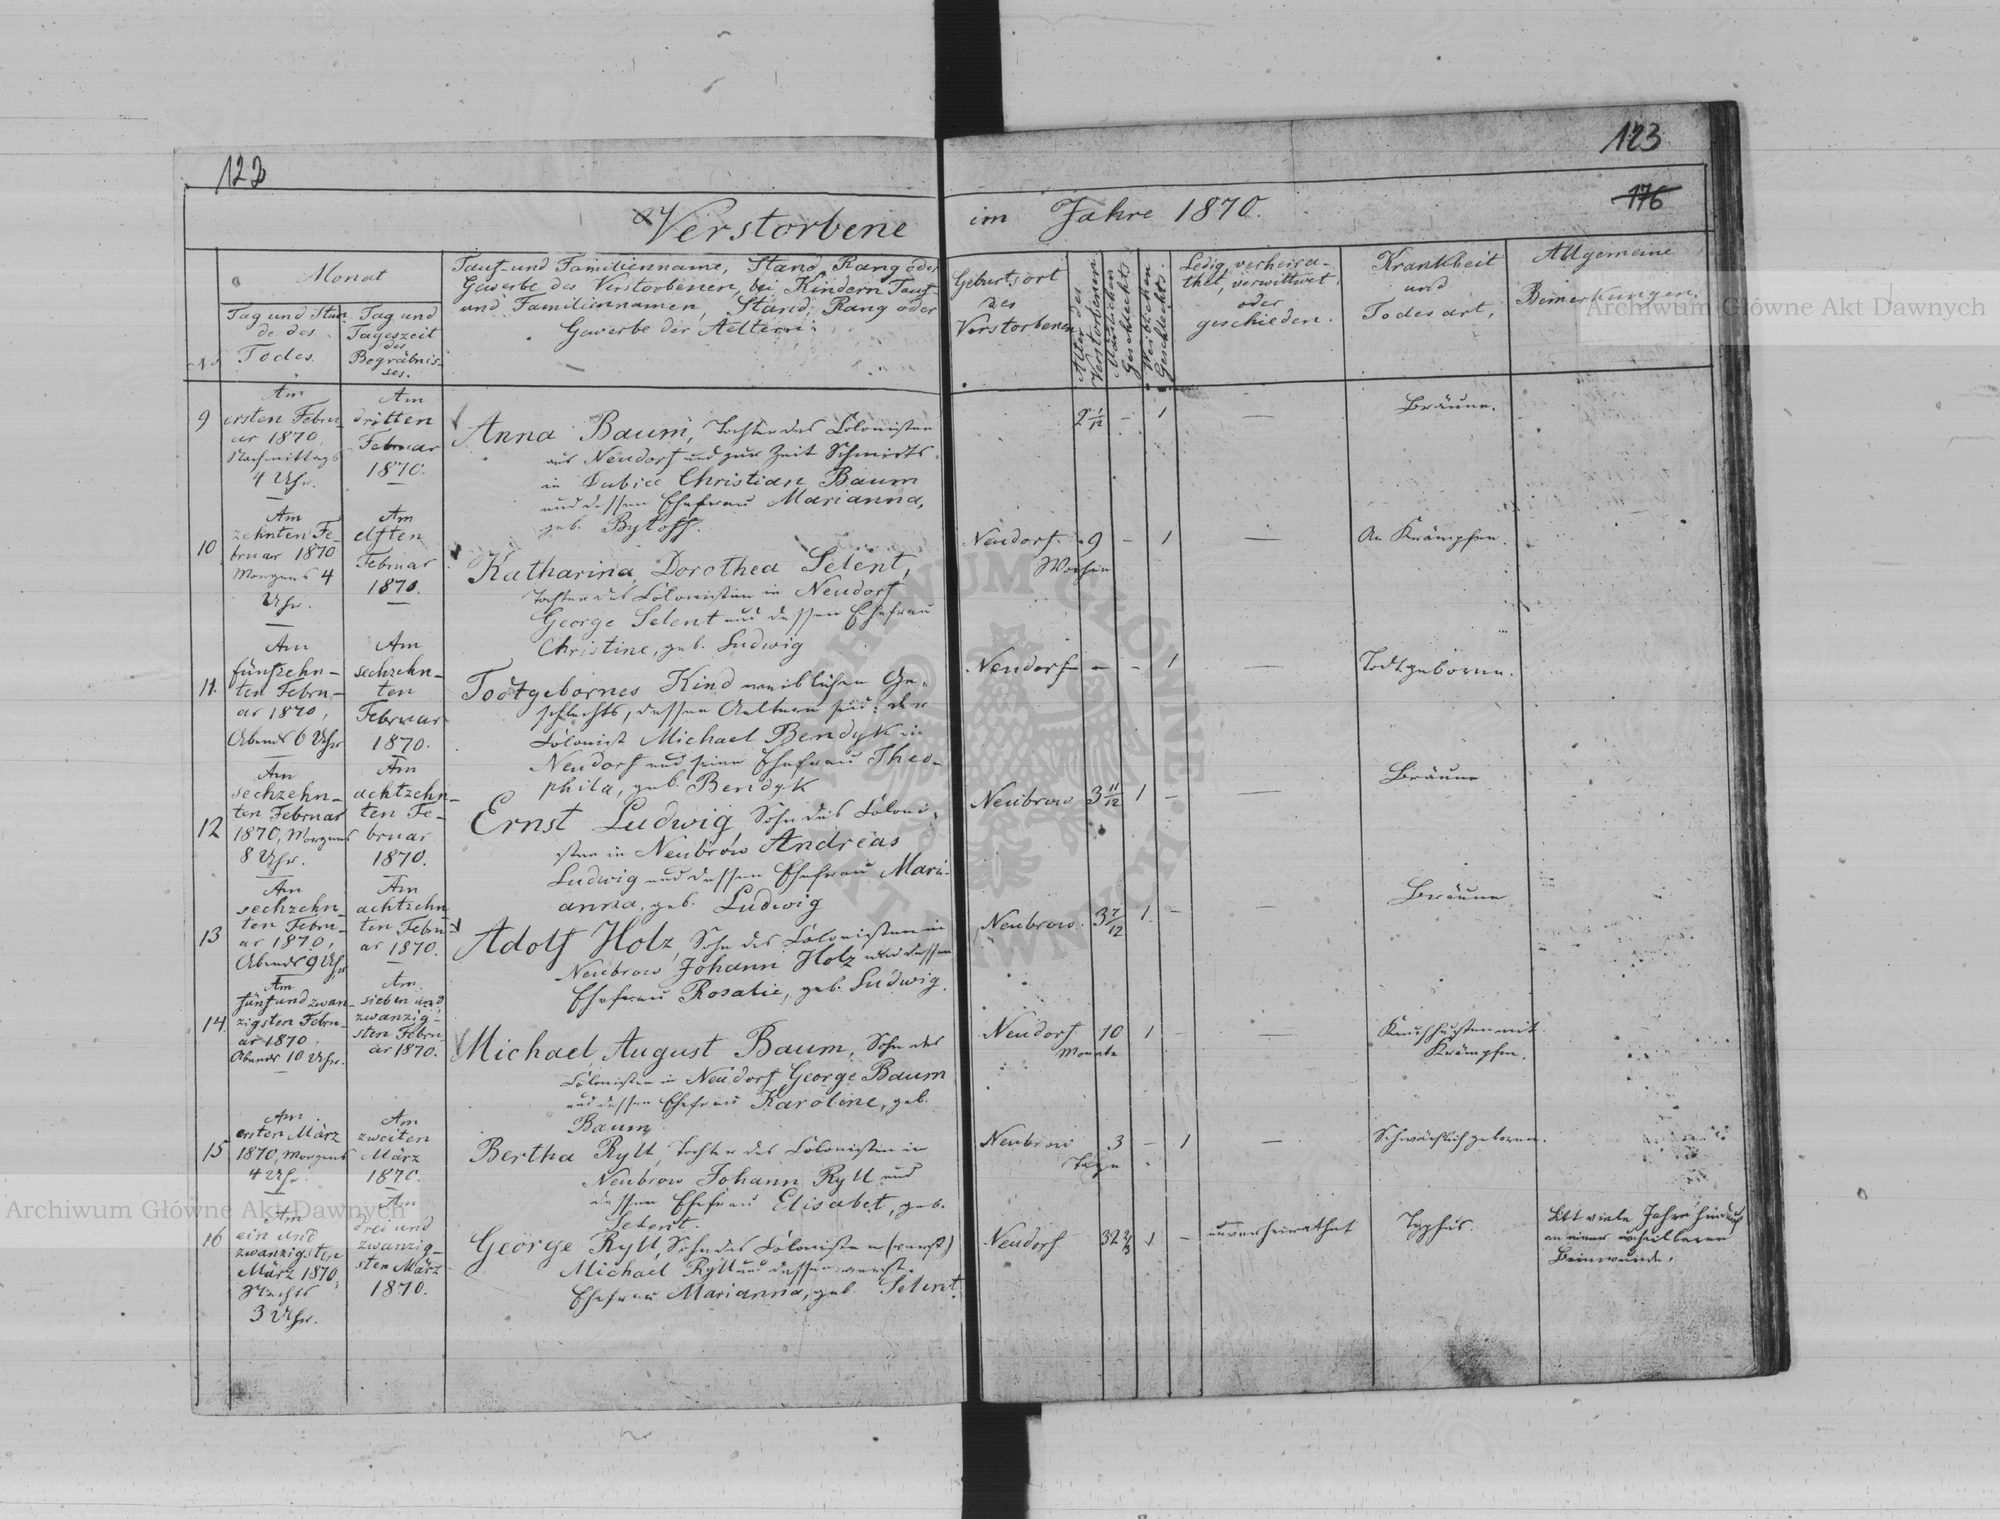 122
123
176
Verstorbene im Jahre 1870.
Monat
Tag und Stun-
de des
Todes.
Tag und
Tageszeit
des
Begräbnis-
ses.
Tauf- und Familienname, Stand, Rang oder
Gewerbe des Verstorbenen, bei Kindern Tauf-
und Familiennamen, Stand, Rang oder
Gewerbe der Aeltern.
Geburtsort
des
Verstorbenen
Alter des
Verstorbenen
Männlichen
Geschlechts
Weiblichen
Geschlechts.
Ledig, verheira-
thet, verwittwet
oder
geschieden.
Krankheit
und
Todesart.
Allgemeine
Bemerkungen.
9
Am
ersten Febru-
ar 1870,
Nachmittags
4 Uhr.
Am
dritten
Februar
1870.
Anna Baum, Tochter des Colonisten
aus Neudorf und zur Zeit Schmidts
in Dubice Christian Baum
und dessen Ehefrau Marianna,
geb. Bytoff.
2 1/12
-
1
—
Bräune.
10
Am
zehnten Fe-
bruar 1870
Morgens 4
Uhr.
Am
elften
Februar
1870.
Katharina Dorothea Selent,
Tochter des Colonisten in Neudorf
George Selent und dessen Ehefrau
Christine, geb. Ludwig
Neudorf
9
Wochen
-
1
—
An Krämpfen.
11.
Am
fünfzehn-
ten Febru-
ar 1870,
Abends 6 Uhr
Am
sechzehn-
ten
Februar
1870.
Todtgebornes Kind weiblichen Ge-
schlechts, dessen Aeltern sind: der
Colonist Michael Bendyk in
Neudorf und seine Ehefrau Theo-
phila, geb. Bendyk
Neudorf
-
-
1
—
Todtgeboren.
12
Am
sechzehn-
ten Februar
1870, Morgens
8 Uhr.
Am
achtzehn-
ten Fe-
bruar
1870.
Ernst Ludwig, Sohn des Coloni-
sten in Neubrow Andreas
Ludwig und dessen Ehefrau Mari-
anna, geb. Ludwig
Neubrow
3 11/12
1
-
—
Bräune
13
Am
sechzehn-
ten Febru-
ar 1870,
Abends 9 Uhr
Am
achtzehn-
ten Febru-
ar 1870.
Adolf Holz, Sohn des Colonisten in
Neubrow Johann Holz und dessen
Ehefrau Rosalie, geb. Ludwig.
Neubrow.
3 7/12
1.
-
—
Bräune
14.
Am
fünf und zwan-
zigsten Febru-
ar 1870,
Abends 10 Uhr.
Am
sieben und
zwanzig-
sten Febru-
ar 1870.
Michael August Baum, Sohn des
Colonisten in Neudorf George Baum
und dessen Ehefrau Karoline, geb.
Baum.
Neudorf
10
Monate
1
-
—
Keuchhusten mit
Krämpfen.
15
Am
ersten März
1870, Morgens
4 Uhr.
Am
zweiten
März
1870.
Bertha Ryll, Tochter des Colonisten in
Neubrow Johann Ryll und
dessen Ehefrau Elisabet, geb.
Selent.
Neubrow
3
Tage
-
1
—
Schwächlich geboren.
16
Am
ein und
zwanzigsten
März 1870,
Nachts
3 Uhr.
Am
drei und
zwanzig-
sten März
1870.
George Ryll, Sohn des Colonisten (verst.)
Michael Ryll und dessen verst.
Ehefrau Marianna, geb. Selent.
Neudorf
32 2/3
1
-
unverheirathet
Typhus.
Litt viele Jahre hindurch
an einer unheilbaren
Beinwunde.
Archiwum Główne Akt Dawnych
Archiwum Główne Akt Dawnych
ARCHIWUM GŁÓWNE AKT DAWNYCH